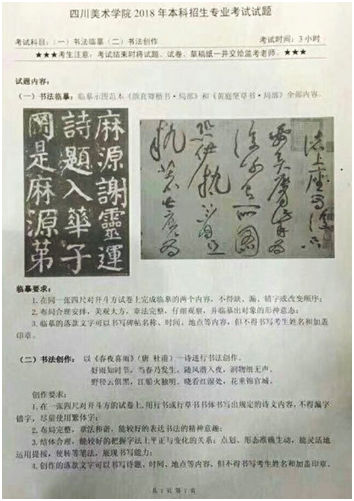 四川美术学院 2018 年本科招生专业考试试题
考试科目：（一）书法临摹（二）书法创作 考试时间：3 小时
★★★考生注意：考试结束时将试题、试卷、草稿纸一并交给监考老师。★★★
试题内容：
（一）书法临摹：临摹示图范本《颜真卿楷书·局部》和《黄庭坚草书·局部》全部内容。
麻源謝靈運
詩題入華子
岡是麻源苐
临摹要求：
1.在同一张四尺对开斗方试卷上完成临摹的两个内容，不得缺、漏、错字或改变顺序；
2.布局合理安排，美观大方，章法完整，仔细观察，并临摹出对象的形神意态；
3.临摹的落款文字可以书写碑帖名称、时间、地点等内容，但不得书写考生姓名和加盖
印章。
（二）书法创作：以《春夜喜雨》（唐 杜甫）一诗进行书法创作。
好雨知时节，当春乃发生。随风潜入夜，润物细无声。
野径云俱黑，江船火独明。晓看红湿处，花重锦官城。
创作要求：
1.在一张四尺对开斗方的试卷上，用行书或行草书书体书写出规定的诗文内容，不得漏字
错字，尽量使用繁体字；
2.布局完整，章法和谐，能较好的表达书法的精神意蕴；
3.结体合理，能较好的把握字法上平正与变化的关系；点划、形态准确生动，能灵活地
运用提按、使转等笔法，展现书写能力；
4.创作的落款文字可以书写诗题，时间、地点等内容，但不得书写考生姓名和加盖印章。
共 1 页 第 1 页